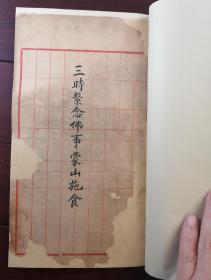 三時繫念佛事蒙山施食